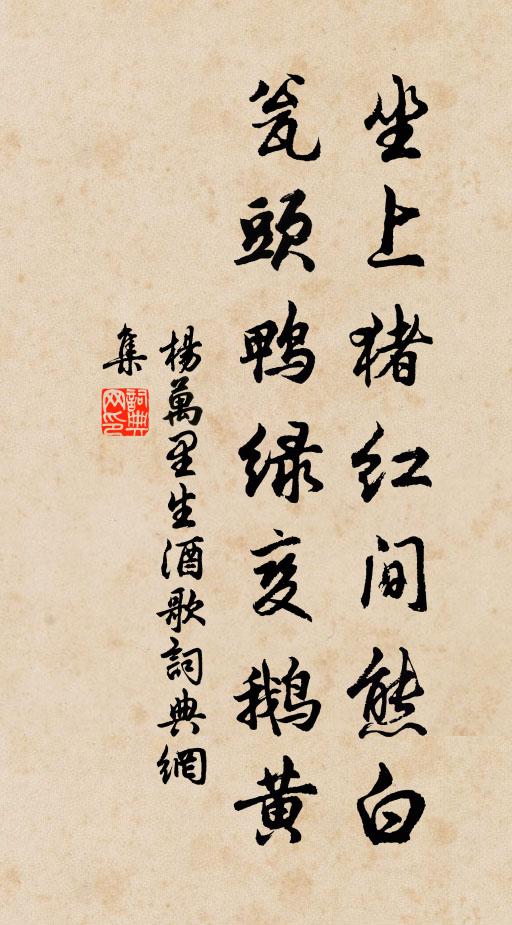 坐上猪红间熊白
瓮頭鴨绿变鹅黄
楊萬里生酒歌詞典網
集
詞典
网印